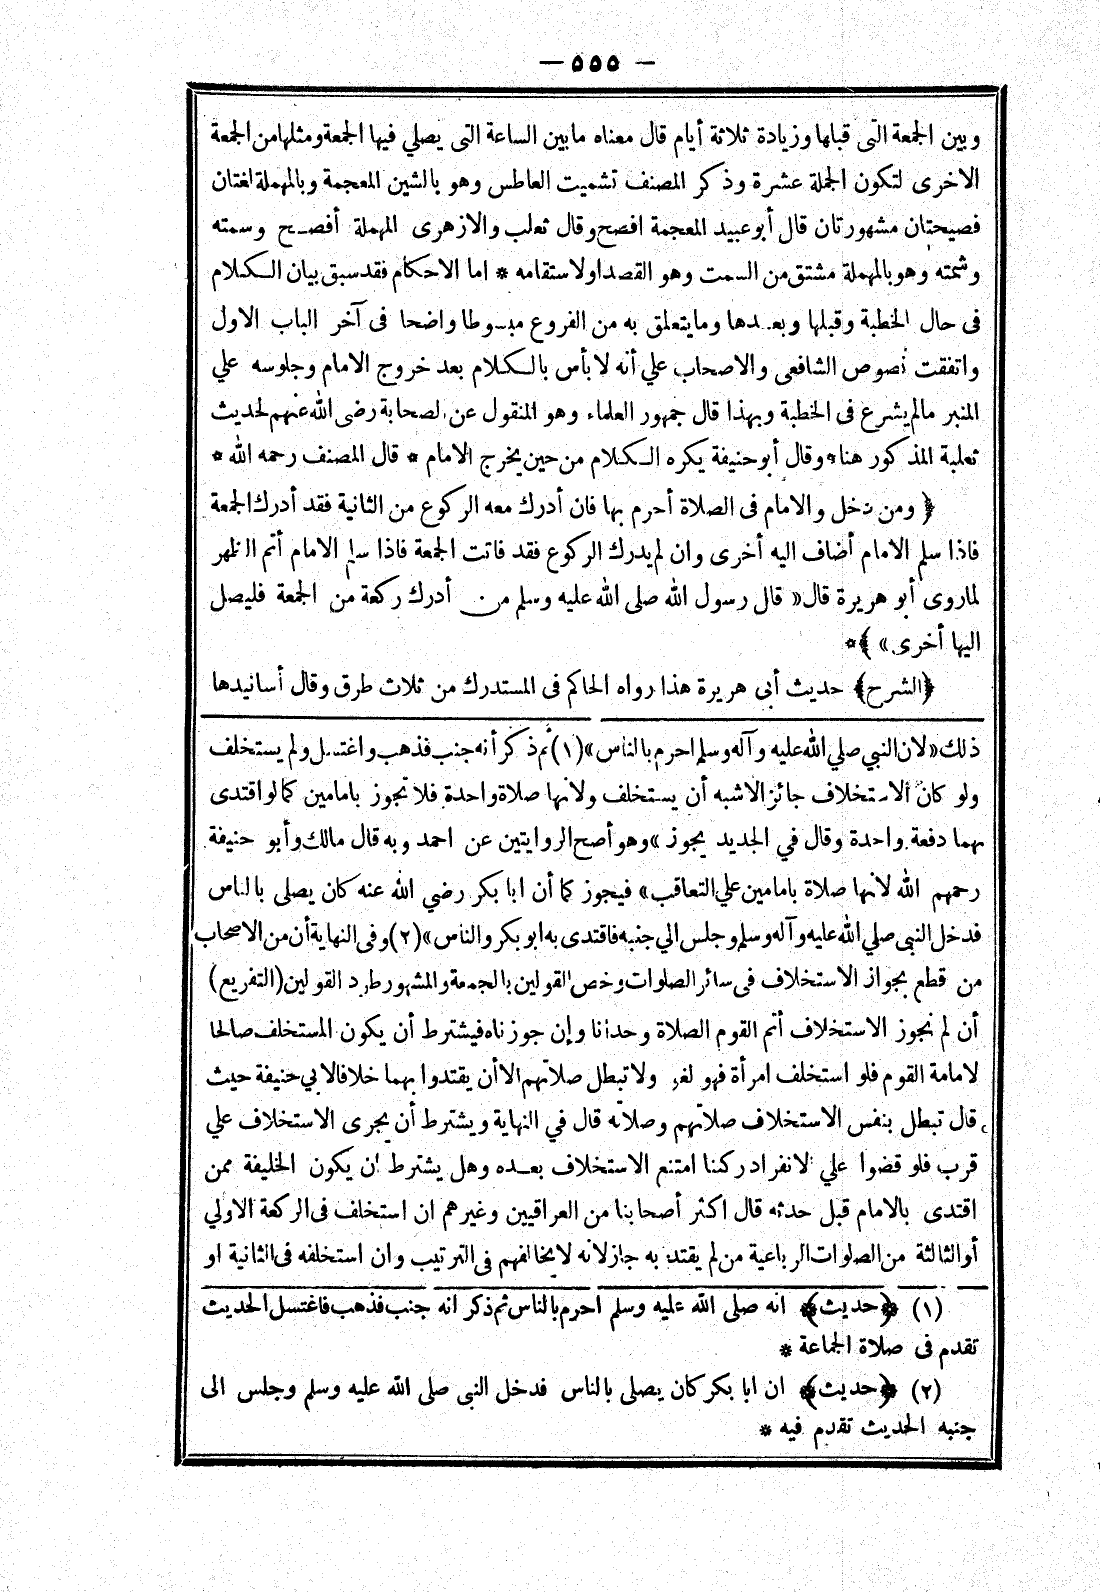 — ٥٥٥ —
وبين الجمعة التى قبلها وزيادة ثلاثة أيام قال معناه مابين الساعة التى يصلي فيها الجمعة ومثلها من الجمعة
الاخرى لتكون الجملة عشرة وذكر المصنف تشميت العاطس وهو بالشين المعجمة وبالمهملة لغتان
فصيحتان مشهورتان قال أبو عبيد المعجمة افصح وقال ثعلب والازهرى المهملة أفصح وسمته
وشمته وهو بالمهملة مشتق من السمت وهو القصد اولاستقامه * اما الاحكام فقد سبق بيان الكلام
فى حال الخطبة وقبلها وبعدها ومايتعلق به من الفروع مبسوطا واضحا فى آخر الباب الاول
واتفقت نصوص الشافعى والاصحاب علي أنه لا بأس بالكلام بعد خروج الامام وجلوسه علي
المنبر مالم يشرع فى الخطبة وبهذا قال جمهور العلماء وهو المنقول عن الصحابة رضى الله عنهم لحديث
ثعلبة المذكور هنا، وقال أبو حنيفة يكره الكلام من حين يخرج الامام * قال المصنف رحمه الله *
﴿ ومن دخل والامام فى الصلاة أحرم بها فان أدرك معه الركوع من الثانية فقد أدرك الجمعة
فاذا سلم الامام أضاف اليه أخرى وان لم يدرك الركوع فقد فاتت الجمعة فاذا سلم الامام أتم الظهر
لماروى أبو هريرة قال « قال رسول الله صلى الله عليه وسلم من أدرك ركعة من الجمعة فليصل
اليها أخرى » ﴾ *
﴿الشرح﴾ حديث أبى هريرة هذا رواه الحاكم فى المستدرك من ثلاث طرق وقال أسانيدها
ذلك « لان النبي صلي الله عليه وآله وسلم احرم بالناس » (١) ثم ذكر أنه جنب فذهب واغتسل ولم يستخلف
ولو كان الاستخلاف جائز الاشبه أن يستخلف ولانها صلاة واحدة فلا تجوز بامامين كما لو اقتدى
بهما دفعة واحدة وقال في الجديد يجوز » وهو أصح الروايتين عن احمد وبه قال مالك وأبو حنيفة
رحمهم الله لانها صلاة بامامين علي التعاقب » فيجوز كما أن ابا بكر رضي الله عنه كان يصلى بالناس
فدخل النبى صلي الله عليه وآله وسلم وجلس الي جنبه فاقتدى به ابو بكر والناس » (٢) وفى النهاية أن من الاصحاب
من قطع بجواز الاستخلاف فى سائر الصلوات وخص القولين بالجمعة والمشهور طرد القولين (التفريع)
أن لم نجوز الاستخلاف أتم القوم الصلاة وحدانا وإن جوزناه فيشترط أن يكون المستخلف صالحا
لامامة القوم فلو استخلف امرأة فهو لغو ولا تبطل صلاتهم الا أن يقتدوا بهما خلافا لابي حنيفة حيث
قال تبطل بنفس الاستخلاف صلاتهم وصلاته قال في النهاية ويشترط أن يجرى الاستخلاف علي
قرب فلو قضوا علي الانفراد ركنا امتنع الاستخلاف بعده وهل يشترط ان يكون الخليفة ممن
اقتدى بالامام قبل حدثه قال اكثر أصحابنا من العراقيين وغيرهم ان استخلف فى الركعة الاولي
أو الثالثة من الصلوات الرباعية من لم يقتد به جاز لانه لا يخالفهم فى الترتيب وان استخلفه فى الثانية او
(١) ﴿حديث﴾ انه صلى الله عليه وسلم احرم بالناس ثم ذكر انه جنب فذهب فاغتسل الحديث
تقدم فى صلاة الجماعة *
(٢) ﴿حديث﴾ ان ابا بكر كان يصلى بالناس فدخل النبى صلى الله عليه وسلم وجلس الى
جنبه الحديث تقدم فيه *